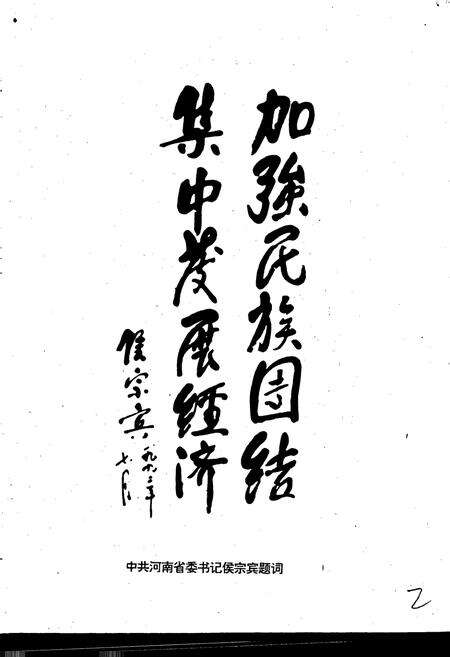 加強民族團结
集中发展经济
侯宗宾
一九九二年
七月
中共河南省委书记侯宗宾题词
2